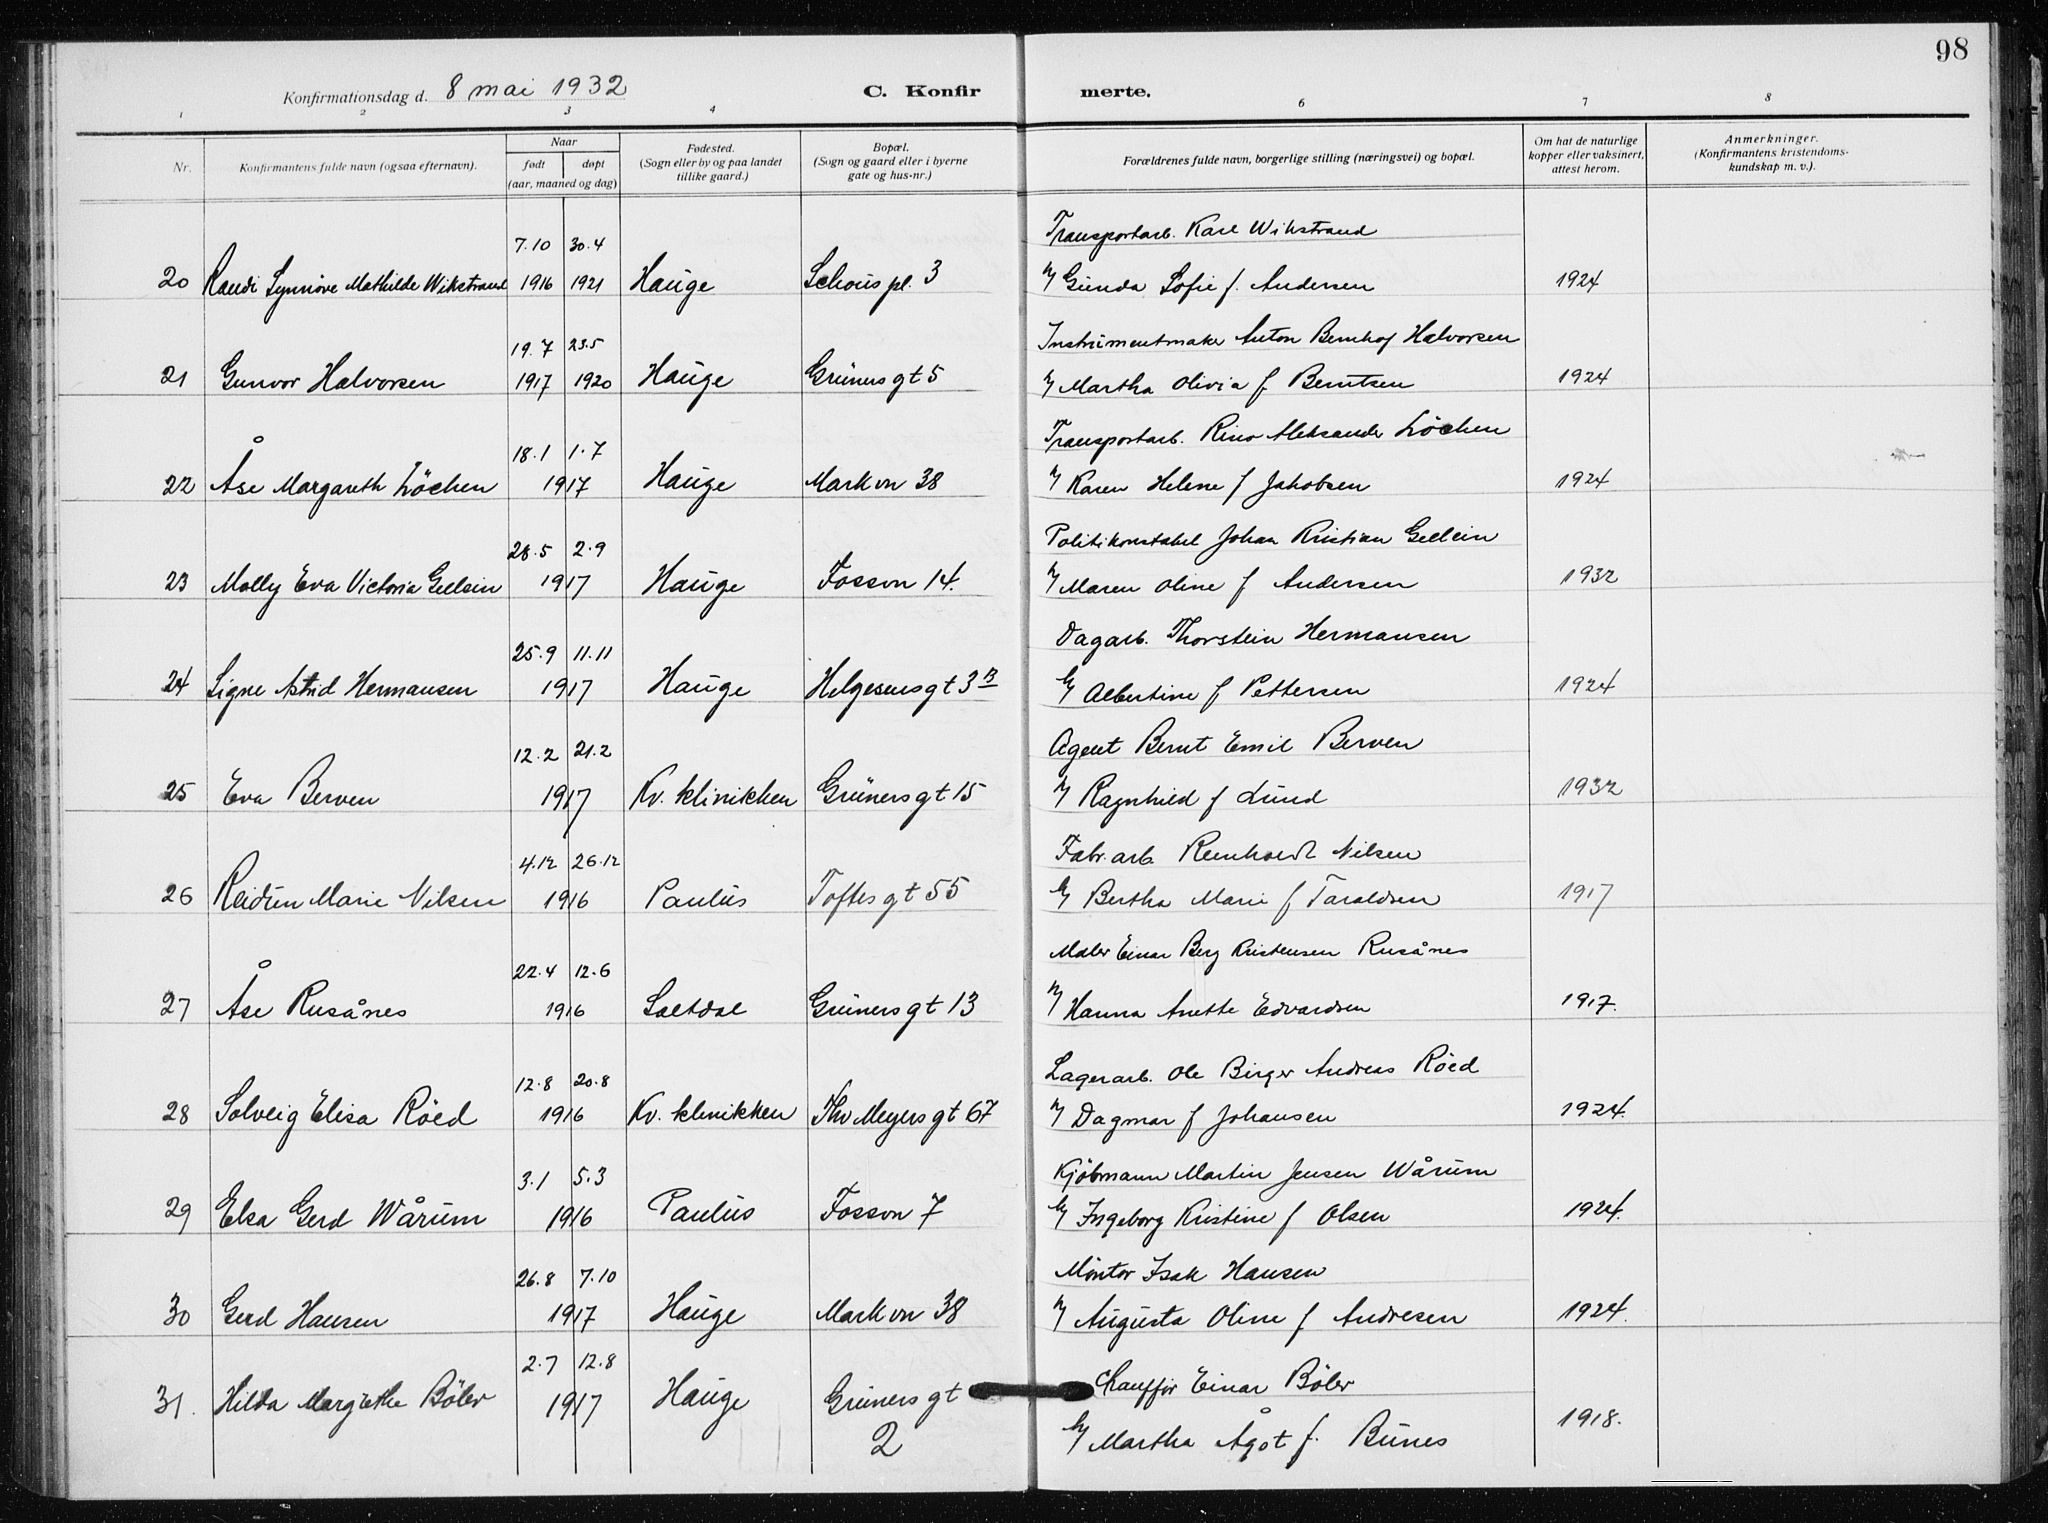 98
Konfirmationsdag d. 8 mai 1932
C. Konfir merte.
1 2 3 4 6 7 8
Nr.
Konfirmantens fulde navn (ogsaa efternavn).
Naar
født døpt
(aar, maaned og dag)
Fødested.
(Sogn eller by og paa landet
tillike gaard.)
Bopæl.
(Sogn og gaard eller i byerne
gate og hus-nr.)
Forældrenes fulde navn, borgerlige stilling (næringsvei) og bopæl.
Om hat de naturlige
kopper eller vaksinert,
attest herom.
Anmerkninger.
(Konfirmantens kristendoms-
kundskap m. v.).
7.10 30.4 Transportarb. Karl Wikstrand
20 Randi Synnöve Mathilde Wikstrand 1916 1921 Hauge Schous pl. 3 Gunda Sofie f. Andersen 1924
19.7 23.5 Instrumentmaker Anton Bernhof Halvorsen
21 Gunvor Halvorsen 1917 1920 Hauge Grüners gt 5 Martha Olivia f Berntsen 1924
18.1 1.7 Transportarb. Rino Aleksander Löchen
22 Åse Margareth Löchen 1917 Hauge Mark vn 38 Karen Helene f Jakobsen 1924
28.5 2.9 Politikonstabel Johan Kristian Gellein
23 Molly Eva Victoria Gellein 1917 Hauge Fossvn 14. Maren Oline f Andersen 1932
25.9 11.11 Dagarb. Thorstein Hermansen
24 Signe Astrid Hermansen 1917 Hauge Helgesensgt 3B Albertine f Pettersen 1924
12.2 21.2 Agent Bernt Emil Berven
25 Eva Berven 1917 Kv. klinikken Grüners gt 15 Ragnhild f Lund 1932
4.12 26.12 Fabr.arb. Reinholdt Nilsen
26 Reidun Marie Nilsen 1916 Paulus Toftes gt 55 Bertha Marie f Taraldsen 1917
22.4 12.6 Maler Einar Berg Kristensen Rusånes
27 Åse Rusånes 1916 Saltdal Grüners gt 13 Hanna Anette Edvardsen 1917.
12.8 20.8 Lagerarb. Ole Birger Andreas Röed
28 Solveig Elisa Röed 1916 Kv. klinikken Thv Meyers gt 67 Dagmar f Johansen 1924.
3.1 5.3 Kjöbmann Martin Jensen Wårum
29 Elsa Gerd Wårum 1916 Paulus Fossvn 7 Ingeborg Kristine f Olsen 1924.
26.8 7.10 Montör Isak Hansen
30 Gerd Hansen 1917 Hauge Mark vn 38 Augusta Oline f Andresen 1924.
2.7 12.8 Chaufför Einar Böler
31. Hilda Margrethe Böler 1917 Hauge Grüners gt
2 Martha Ågot f. Bunes 1918.